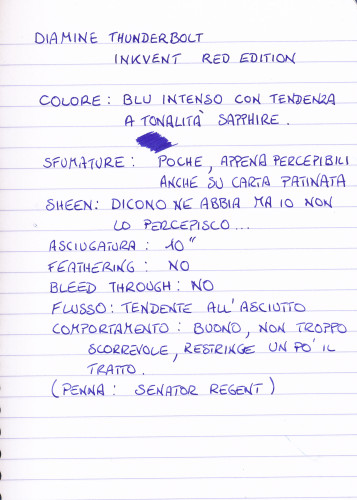 DIAMINE THUNDERBOLT
INKVENT RED EDITION
COLORE: BLU INTENSO CON TENDENZA
A TONALITÀ SAPPHIRE.
SFUMATURE: POCHE, APPENA PERCEPIBILI
ANCHE SU CARTA PATINATA
SHEEN: DICONO NE ABBIA MA IO NON
LO PERCEPISCO...
ASCIUGATURA: 10"
FEATHERING: NO
BLEED THROUGH: NO
FLUSSO: TENDENTE ALL'ASCIUTTO
COMPORTAMENTO: BUONO, NON TROPPO
SCORREVOLE, RESTRINGE UN PO' IL
TRATTO.
(PENNA: SENATOR REGENT)